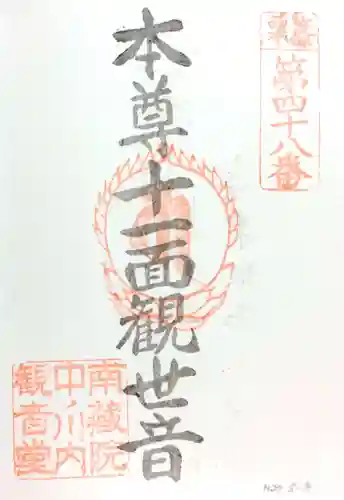 第四十八番
本尊十一面観世音
南蔵院
中川内
観音堂